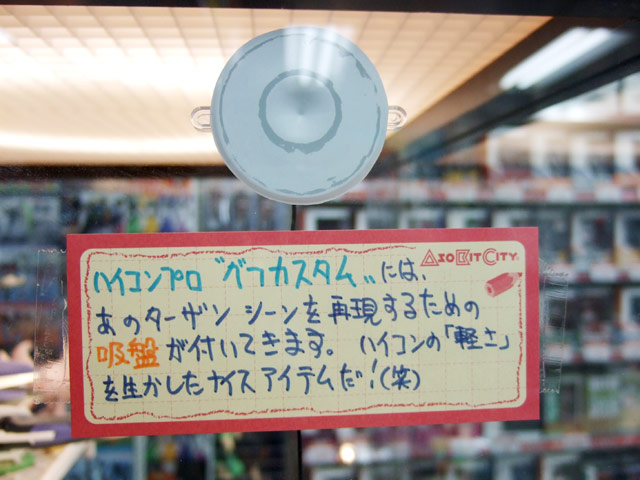 ハイコンプロ〝グフカスタム〟には、
ASOBIT CITY
あのターザンシーンを再現するための
吸盤が付いてきます。 ハイコンの「軽さ」
を生かしたナイスアイテムだ!(笑)